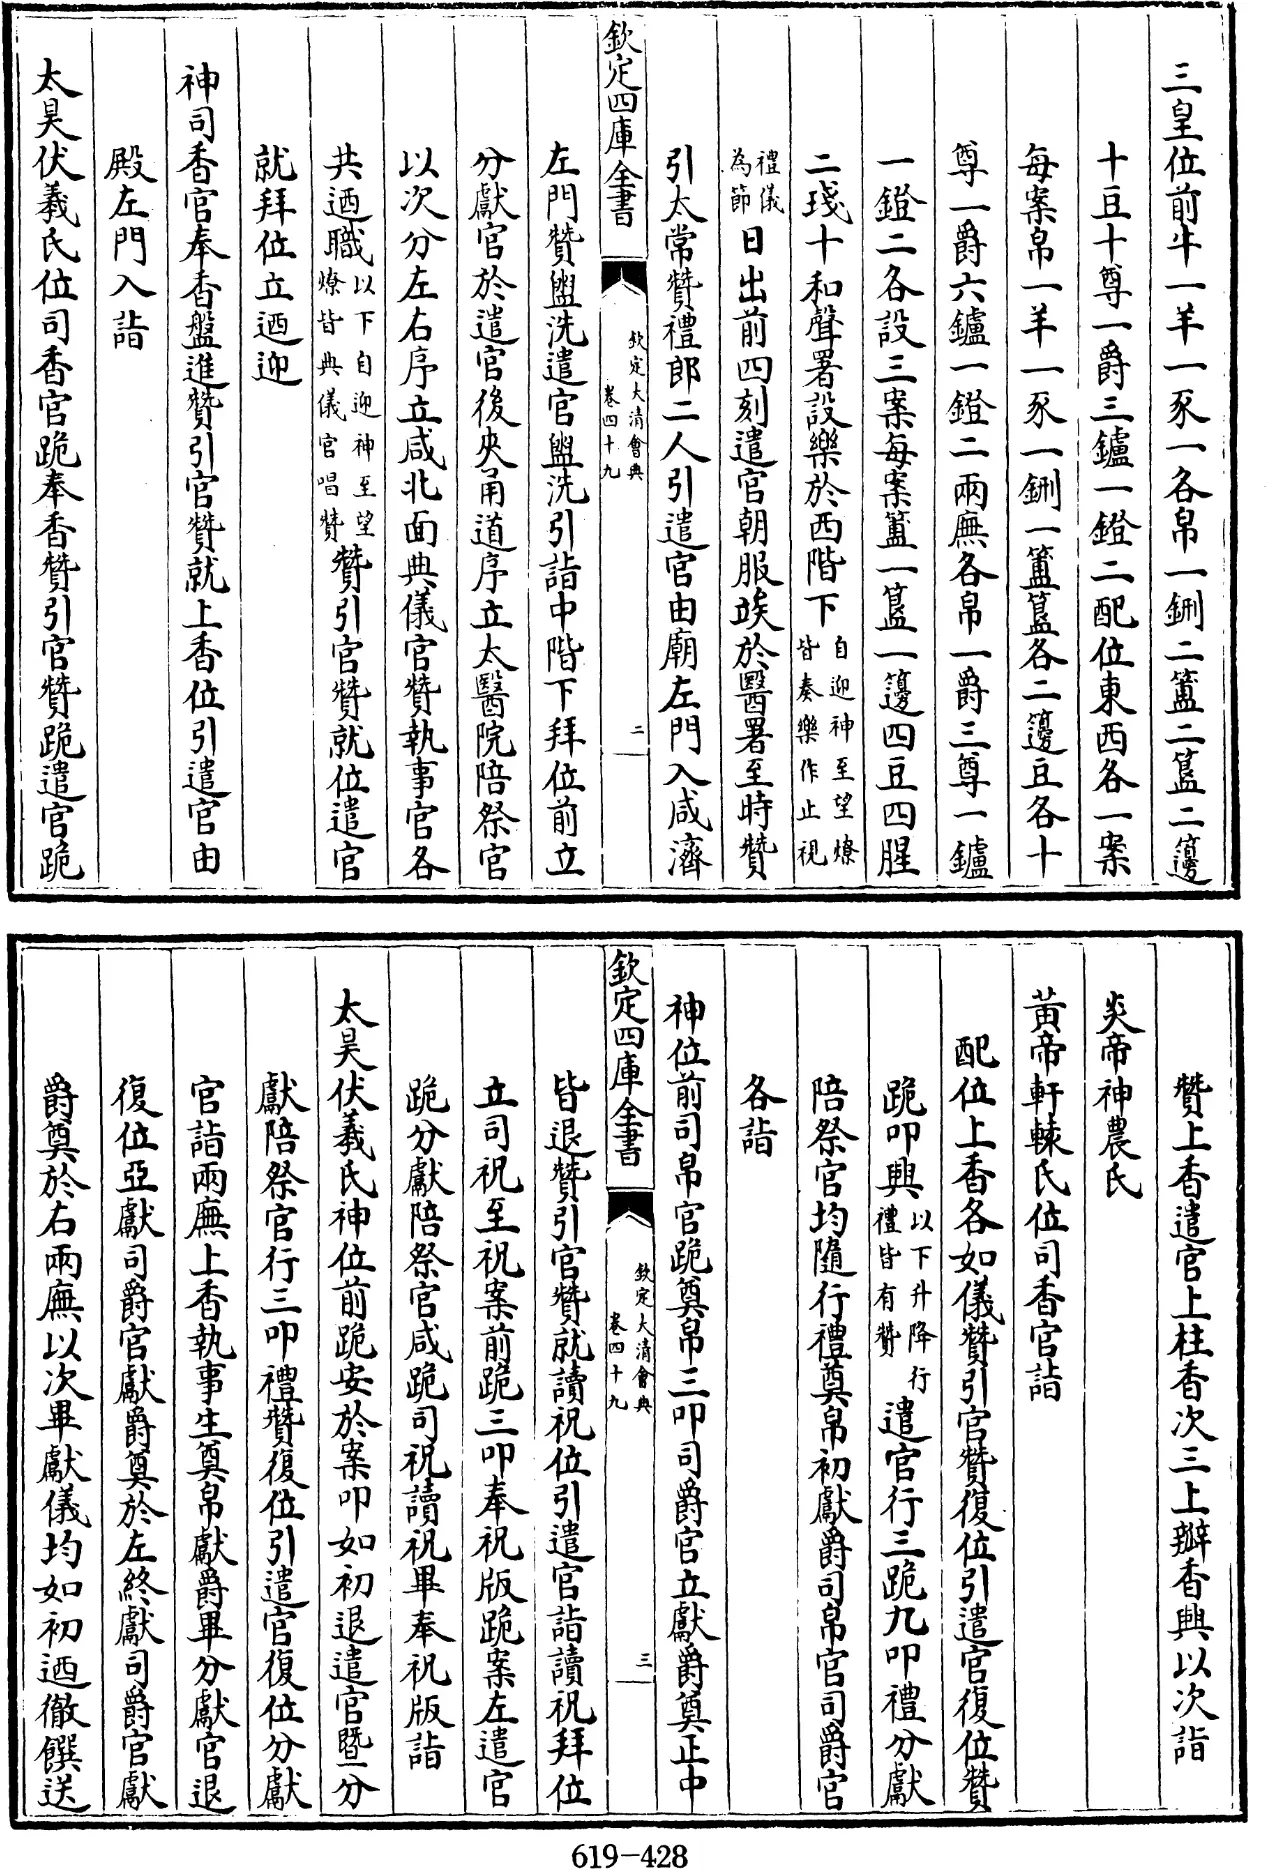 三皇位前牛一羊一豕一各帛一鉶二簠二簋二籩
十豆十尊一爵三鑪一鐙二配位東西各一案
每案帛一羊一豕一鉶一簠簋各二籩豆各十
尊一爵六鑪一鐙二兩廡各帛一爵三尊一鑪
一鐙二各設三案每案簠一簋一籩四豆四腥
二琖十和聲署設樂於西階下自迎神至望燎皆奏樂作止視
禮儀為節日出前四刻遣官朝服竢於醫署至時贊
引太常贊禮郎二人引遣官由廟左門入咸濟
欽定四庫全書
欽定大清會典
卷四十九
二
左門贊盥洗遣官盥洗引詣中階下拜位前立
分獻官於遣官後夾甬道序立太醫院陪祭官
以次分左右序立咸北面典儀官贊執事官各
共迺職以下自迎神至望燎皆典儀官唱贊贊引官贊就位遣官
就拜位立迺迎
神司香官奉香盤進贊引官贊就上香位引遣官由
殿左門入詣
太昊伏羲氏位司香官跪奉香贊引官贊跪遣官跪
贊上香遣官上柱香次三上瓣香興以次詣
炎帝神農氏
黃帝軒轅氏位司香官詣
配位上香各如儀贊引官贊復位引遣官復位贊
跪叩興以下升降行禮皆有贊遣官行三跪九叩禮分獻
陪祭官均隨行禮奠帛初獻爵司帛官司爵官
各詣
神位前司帛官跪奠帛三叩司爵官立獻爵奠正中
欽定四庫全書
欽定大清會典
卷四十九
三
皆退贊引官贊就讀祝位引遣官詣讀祝拜位
立司祝至祝案前跪三叩奉祝版跪案左遣官
跪分獻陪祭官咸跪司祝讀祝畢奉祝版詣
太昊伏羲氏神位前跪安於案叩如初退遣官暨分
獻陪祭官行三叩禮贊復位引遣官復位分獻
官詣兩廡上香執事生奠帛獻爵畢分獻官退
復位亞獻司爵官獻爵奠於左終獻司爵官獻
爵奠於右兩廡以次畢獻儀均如初迺徹饌送
619-428